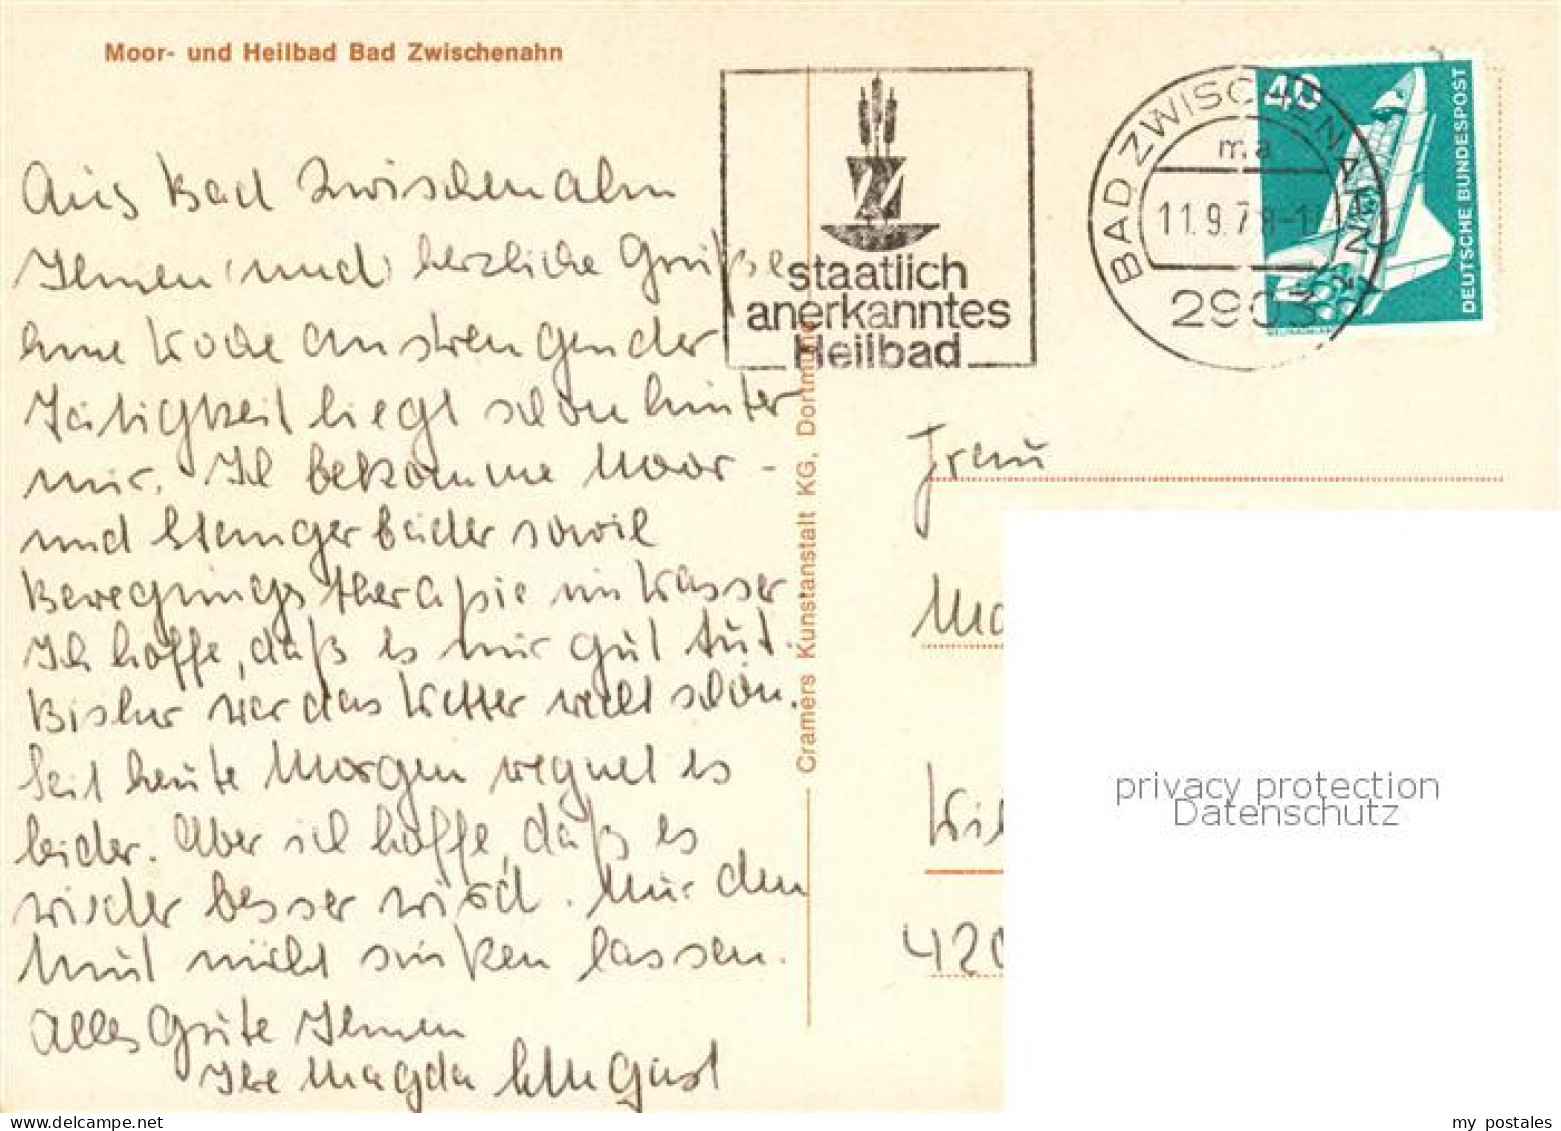 Moor- und Heilbad Bad Zwischenahn
Aus Bad Zwischenahn
Ihnen und herzliche Grüße
eine Woche anstrengender
Tätigkeit liegt schon hinter
mir. Ich bekomme Moor-
und Stangerbäder sowie
Bewegungstherapie im Wasser
Ich hoffe, daß es mir gut tut.
Bisher war das Wetter recht schön.
Seit heute Morgen regnet es
leider. Aber ich hoffe, daß es
wieder besser wird. Nur den
Mut nicht sinken lassen.
Alles Gute Ihnen
Ihre Magda
staatlich
anerkanntes
Heilbad
BAD ZWISCHENAHN
ma
11.9.78-1
2903
40
DEUTSCHE BUNDESPOST
Cramers Kunstanstalt KG, Dortmund
Frau
Ma
Wil
420
privacy protection
Datenschutz
my postales